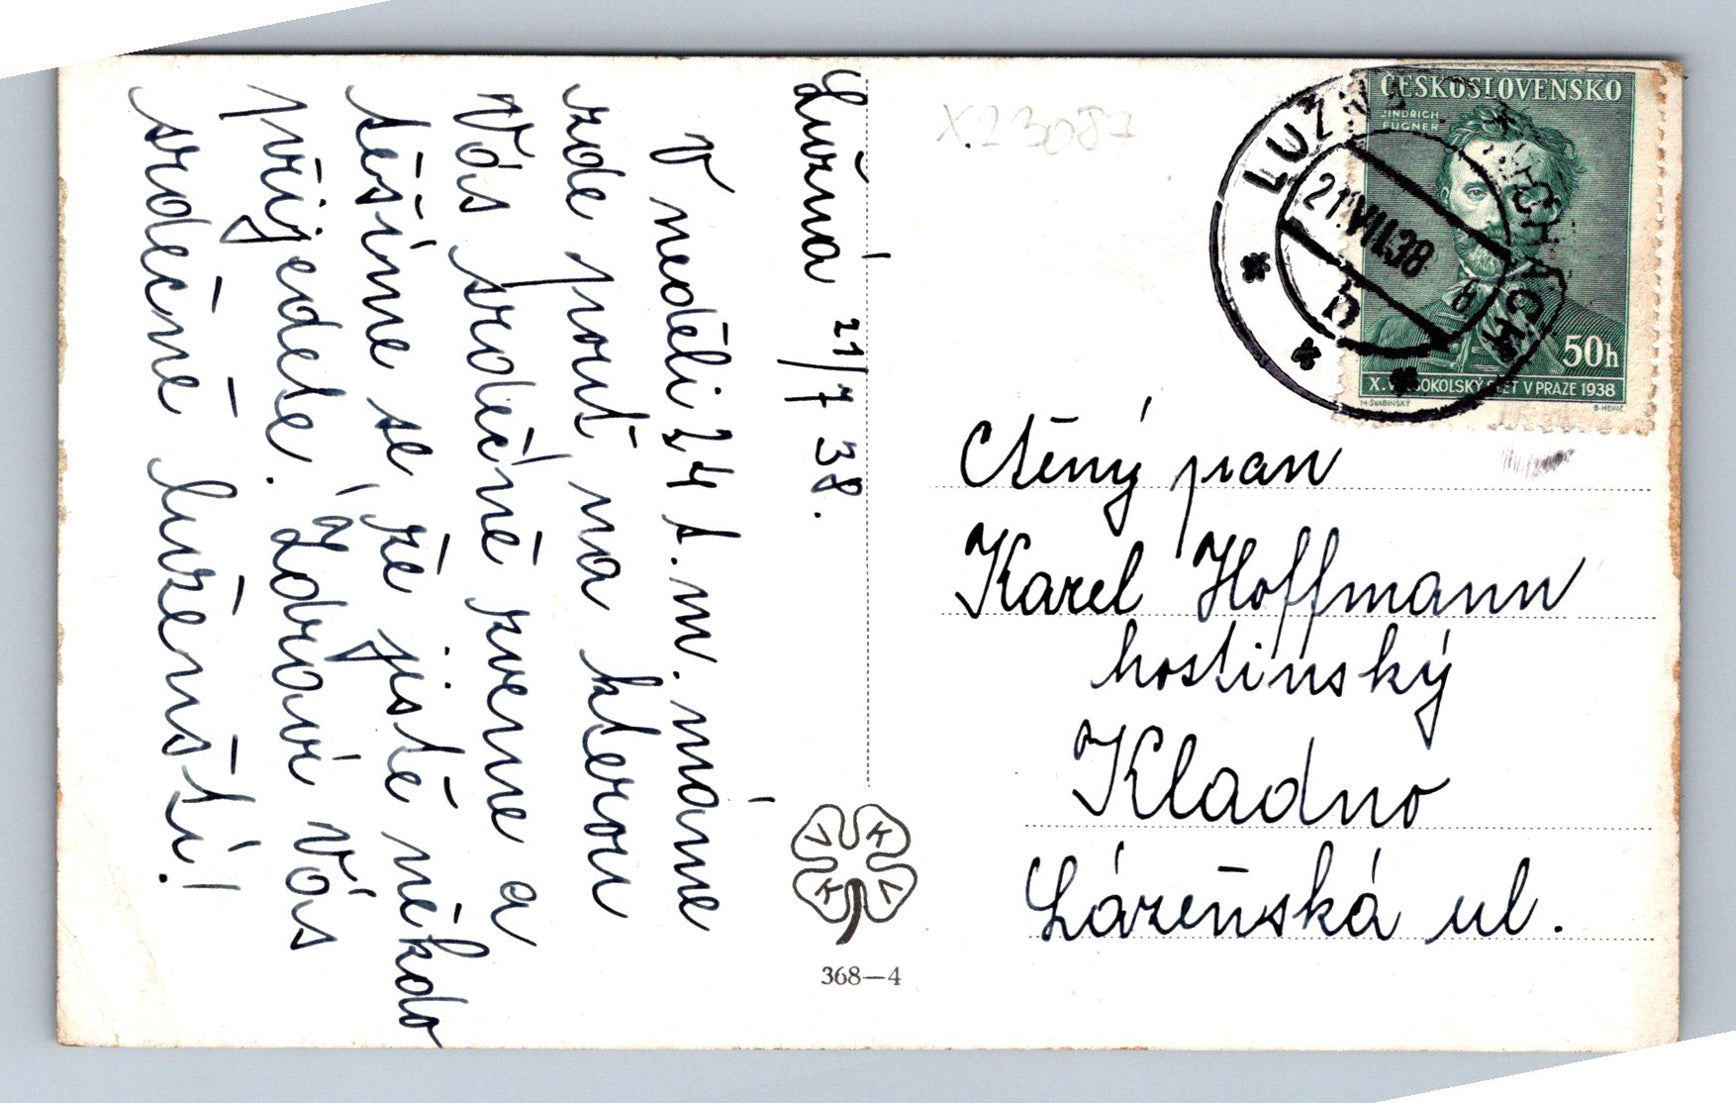 Lužná 21/7 38.
V neděli 24 t. m. máme
zde pouť na kterou
Vás srdečně zveme a
těšíme se že jistě někdo
přijedete. Zdraví Vás
srdečně lužénští!
X.23087
ČESKOSLOVENSKO
JINDŘICH
FÜGNER
50h
X. VŠESOKOLSKÝ SLET V PRAZE 1938
M. ŠVABINSKÝ
B. HEINZ
21.VII.38
8
b
Ctěný pan
Karel Hoffmann
hostinský
Kladno
Lázeňská ul.
V K K V
368—4